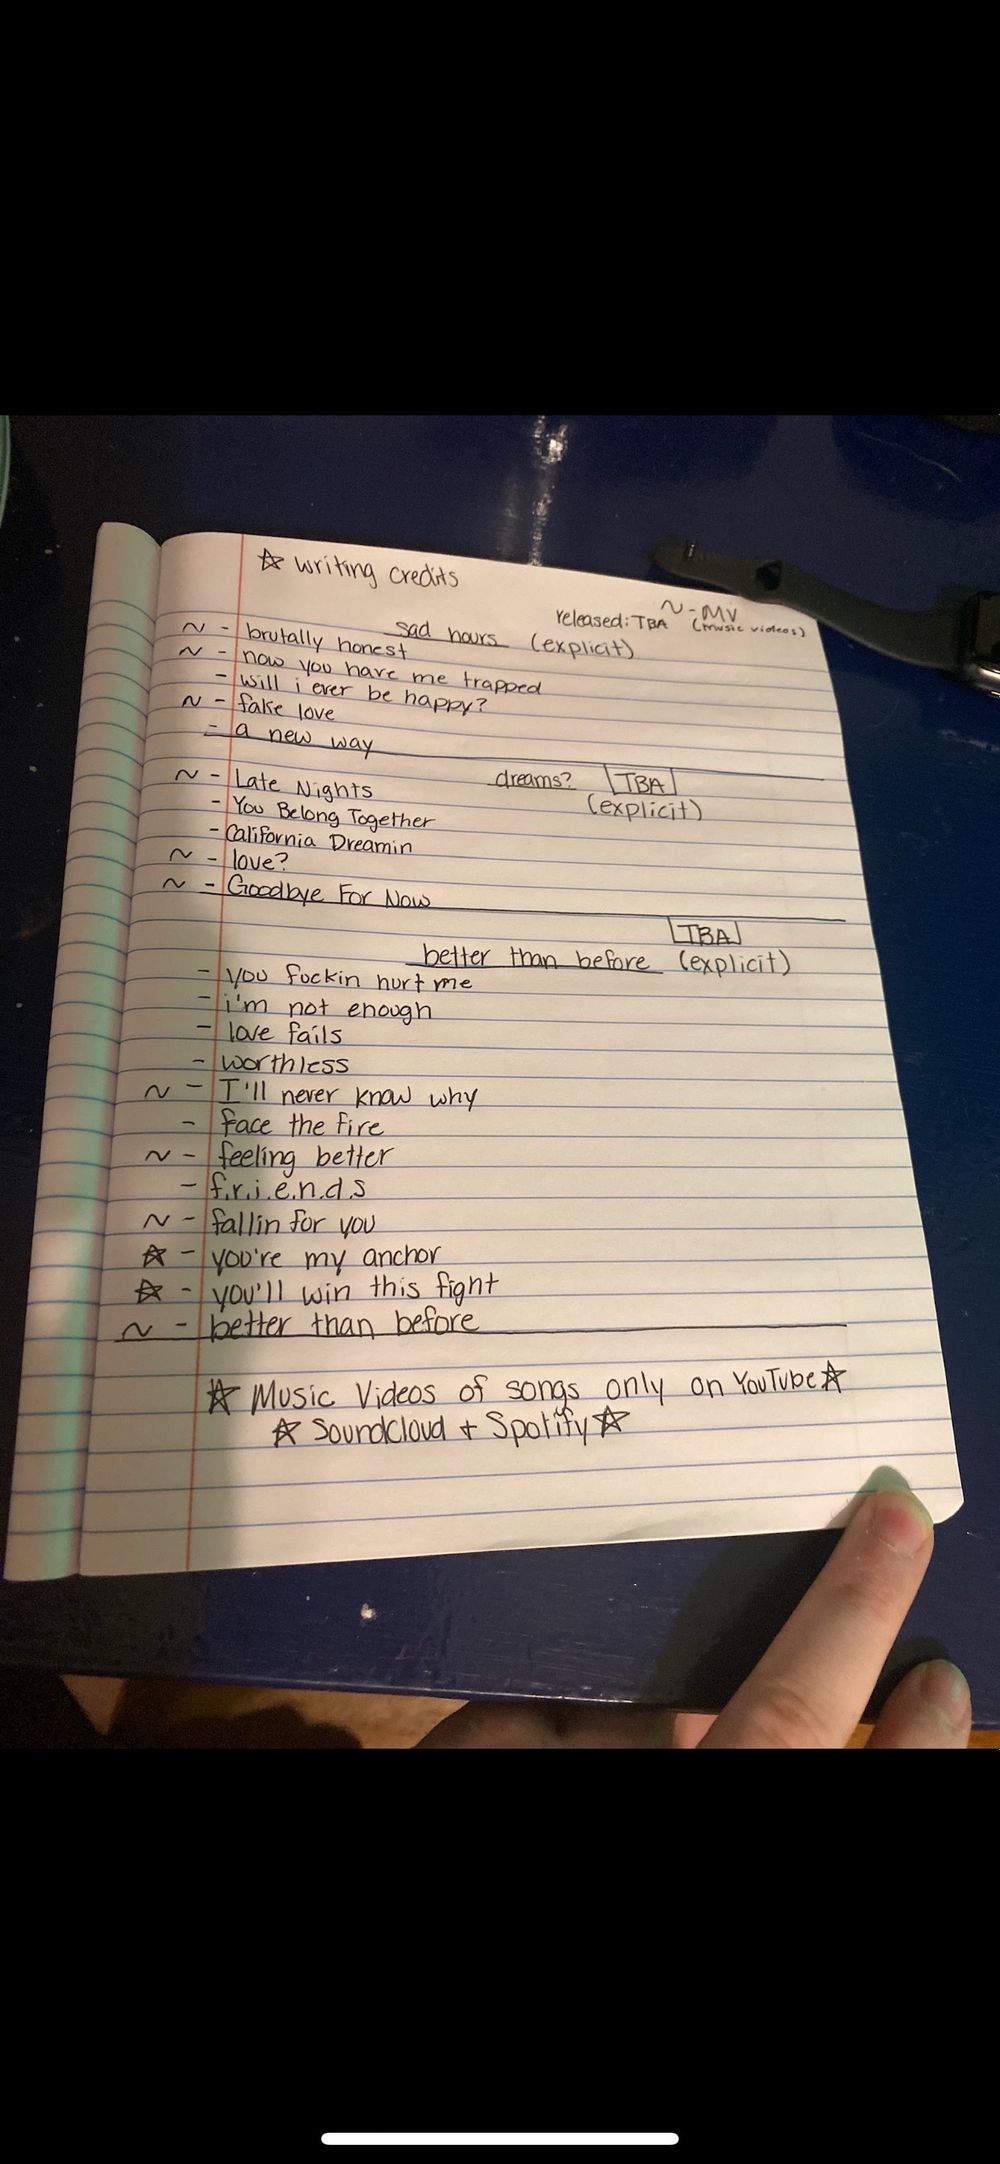 ☆ writing credits
~ - MV
released: TBA (music videos)
sad hours (explicit)
~ - brutally honest
~ - now you have me trapped
- will i ever be happy?
~ - fake love
- a new way
dreams? TBA
(explicit)
~ - Late Nights
- You Belong Together
- California Dreamin
~ - love?
~ - Goodbye For Now
TBA
better than before (explicit)
- you fuckin hurt me
- i'm not enough
- love fails
- worthless
~ - I'll never know why
- face the fire
~ - feeling better
- f.r.i.e.n.d.s
~ - fallin for you
☆ - you're my anchor
☆ - you'll win this fight
~ - better than before
☆ Music Videos of songs only on YouTube ☆
☆ Soundcloud + Spotify ☆